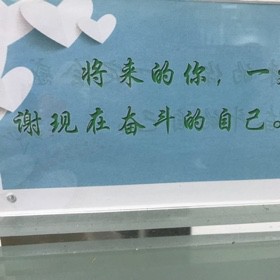 将来的你，一
谢现在奋斗的自己。